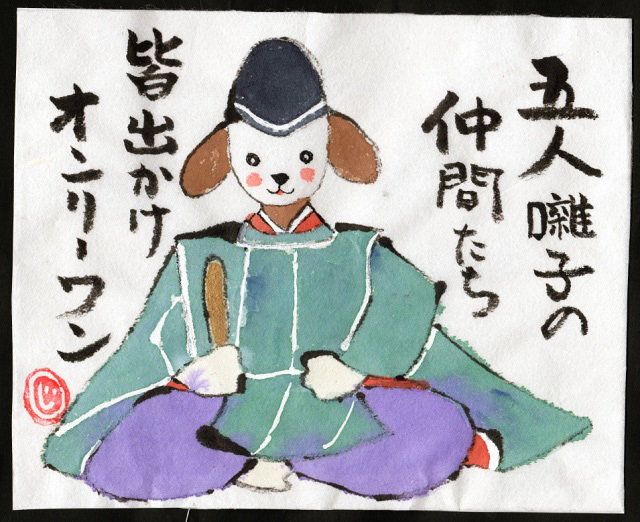 五人囃子の
仲間たち
皆出かけ
オンリーワン